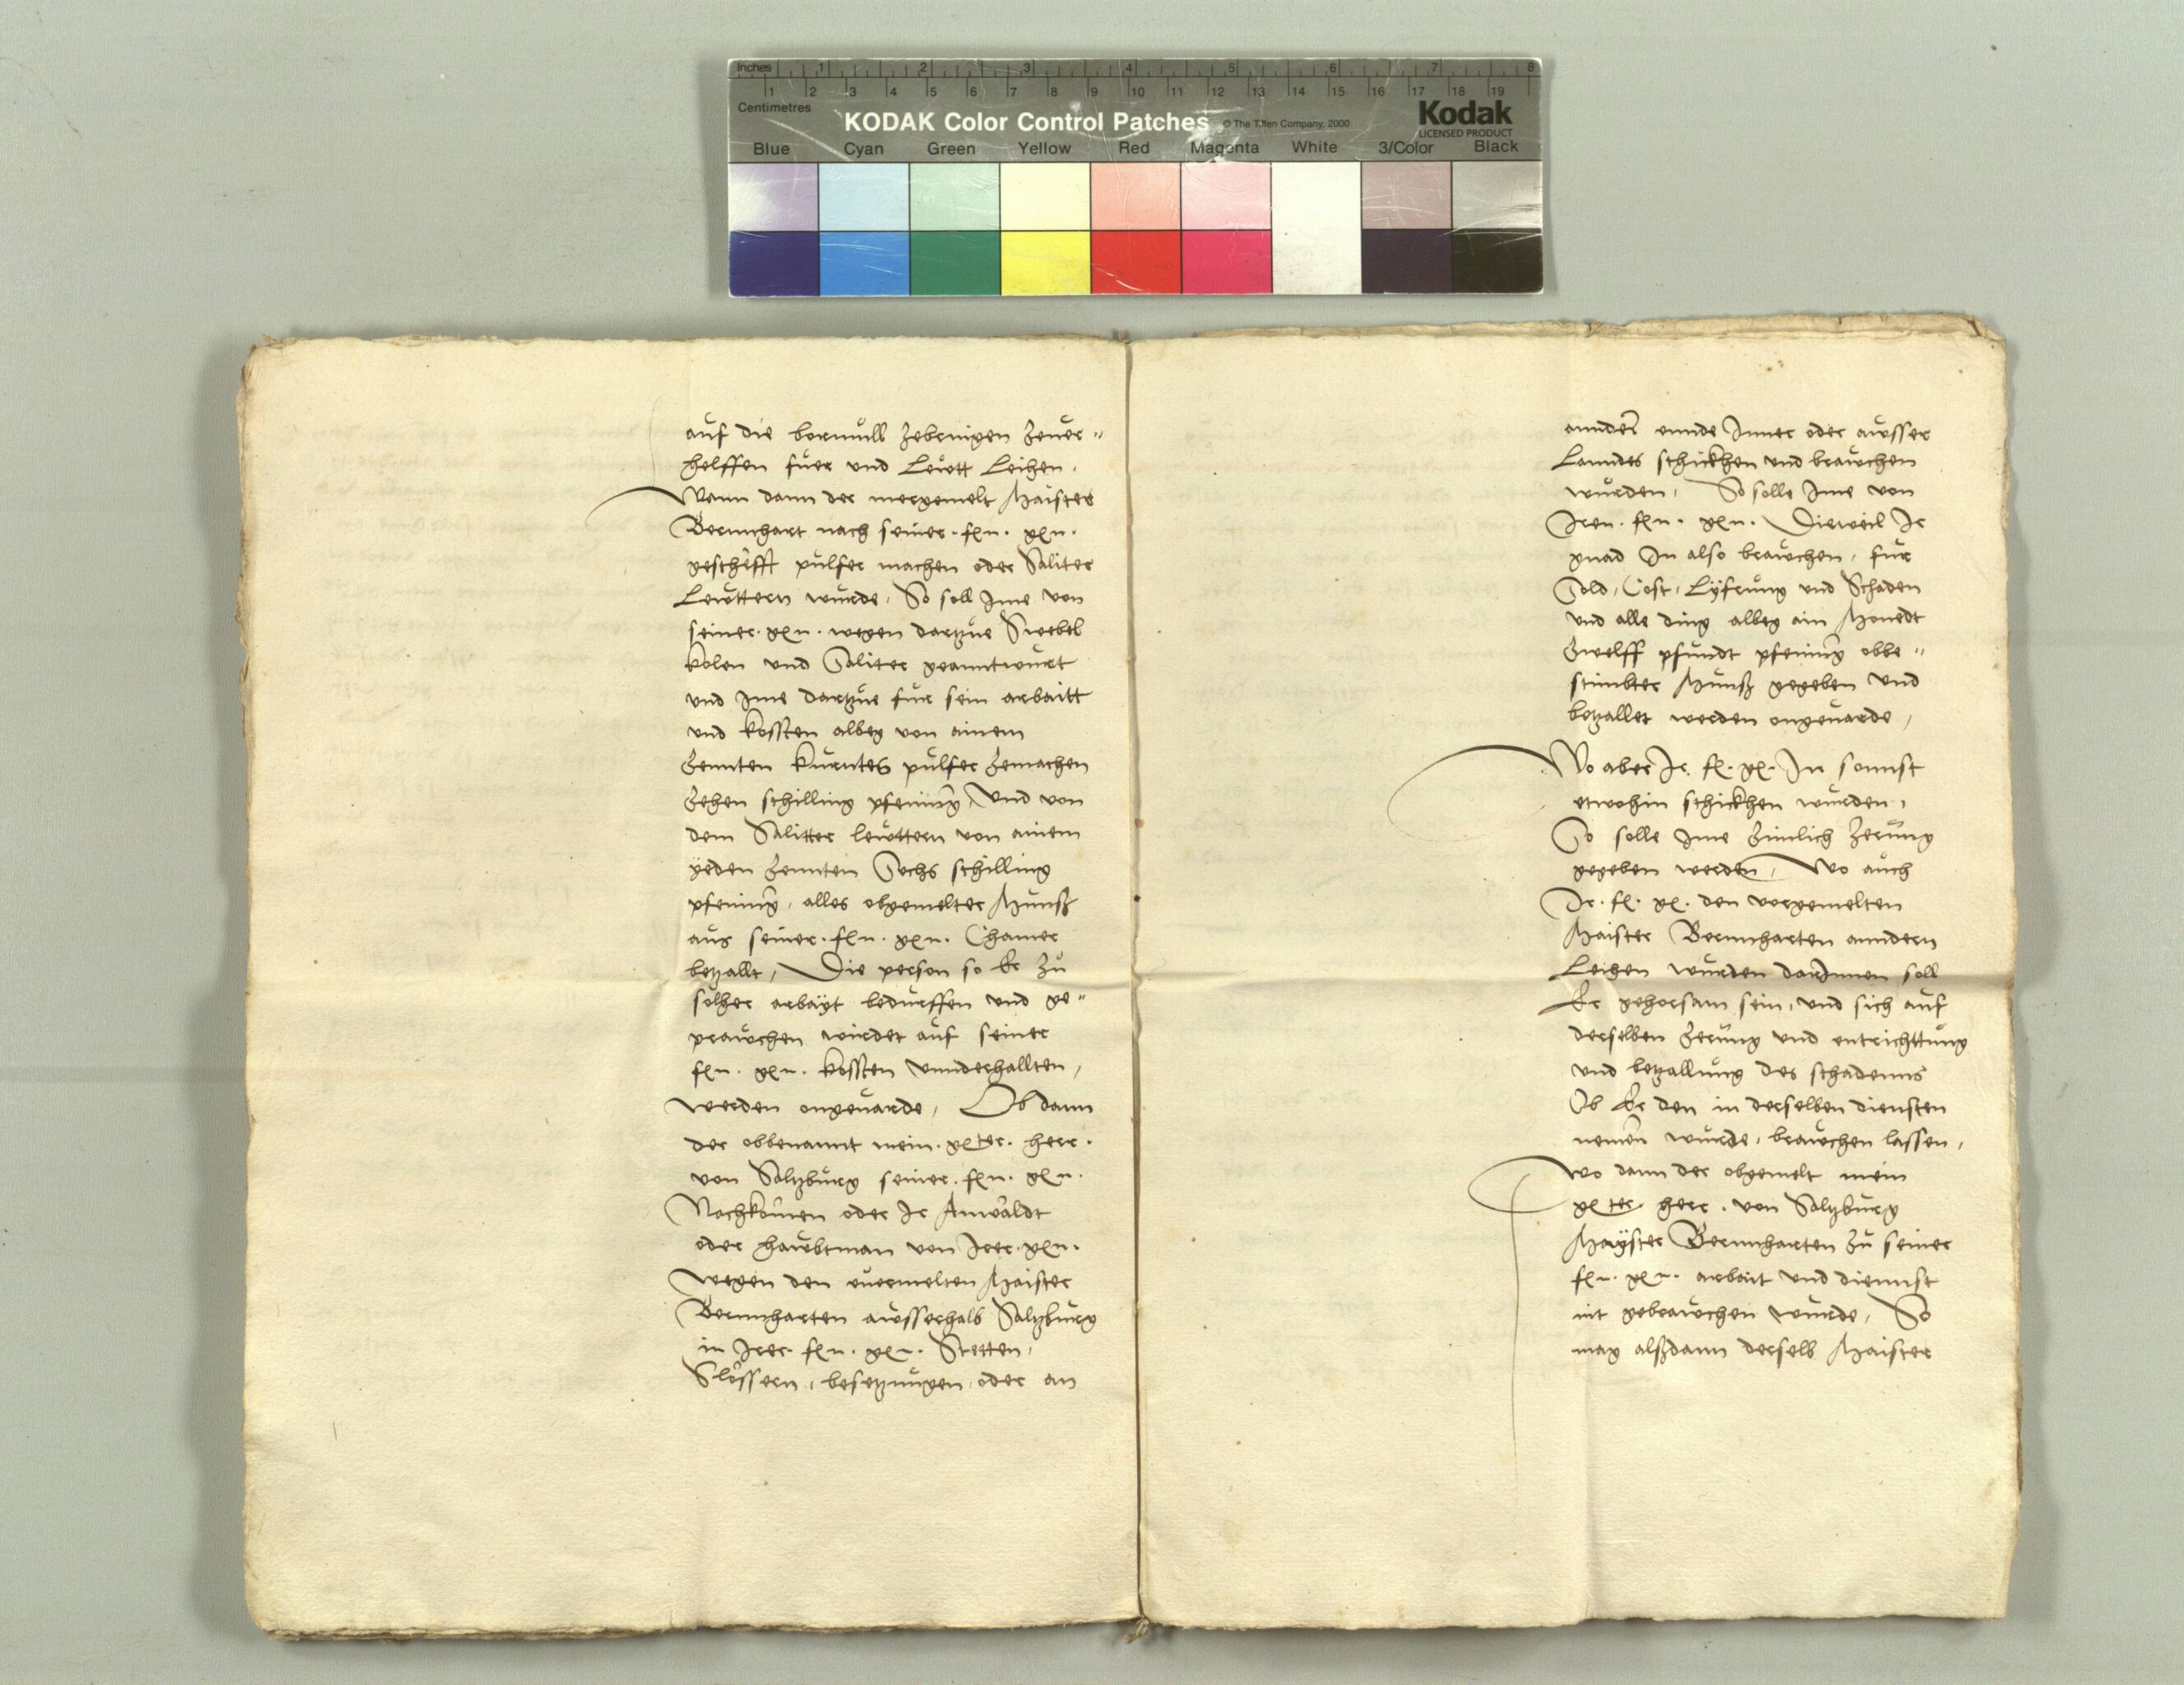 Inches 1 2 3 4 5 6 7 8
1 2 3 4 5 6 7 8 9 10 11 12 13 14 15 16 17 18 19
Centimetres
KODAK Color Control Patches © The Tiffen Company, 2000 Kodak
LICENSED PRODUCT
Blue Cyan Green Yellow Red Magenta White 3/Color Black
auf die bormüll zebringen zeuer-
helffen fuer und Lewtt Leihen.
Wann dann der mergemelt Maister
Bernnhart nach seiner. f(n. g(n.
geschëfft pulfer machen oder Saliter
Lewttern wurde, So soll Ime von
seiner. g(n. wegen dartzue Swebel
kolen und Saliter geanntwurt
und Ime dartzue für sein arbaitt
und kossten albeg von ainem
Zennten kurntes pulfer Zemachen
Zehen schilling pfening, Und von
dem Salitter lewttern von ainem
yeden Zennten Sechs schilling
pfening, alles obgemelter Munss
aus seiner. f(n. g(n. Chamer
betzallt, Die person so Er zu
solher arbayt bedurffen und ge-
prawchen wirdet auf seiner
f(n. g(n. kossten unnderhallten,
werden ongeuarde, Ob dann
der obbenannt mein. g(ter. herr.
von Saltzburg seiner. f(n. g(n.
Nachkomen oder Ir Anwäldt
oder hawbtman von Irer. g(n.
wegen den euermelten Maister
Bernnharten awsserhalb Saltzburg
in Irer. f(n. g(n. Stetten,
Slössern, besetzungen, oder an
annder ennde Inner oder awsser
Lanndes schickhen und brawchen
wurden, So solle Ime von
Iren. f(n. g(n. Dieweil Ir
gnad In also brawchen, für
Sold, Cost, Lyfrung und Schaden
und alle ding albeg ain Monedt
Zwelff pfundt pfening obbe-
stimbter Munss gegeben und
betzallet werden ongeuarde,
Wo aber Ir. f(. g(. In sonnst
etwohin schickhen wurden,
So solle Ime Zimlich Zerung
gegeben werden, Wo auch
Ir. f(. g(. den vorgemelten
Maister Bernnharten anndern
Leihen wurden darInnen soll
Er gehorsam sein, und sich auf
derselben Zerung und entrichttung
und betzallung des schadenns
Ob Er den in derselben diensten
nemen wurde, brawchen lassen,
wo dann der obgemelt mein
g(ter. herr. von Saltzburg
Mayster Bernnharten zu seiner
f(n. g(n. arbait und diennst
nit gebrawchen wurde, So
mag alssdann derselb Maister